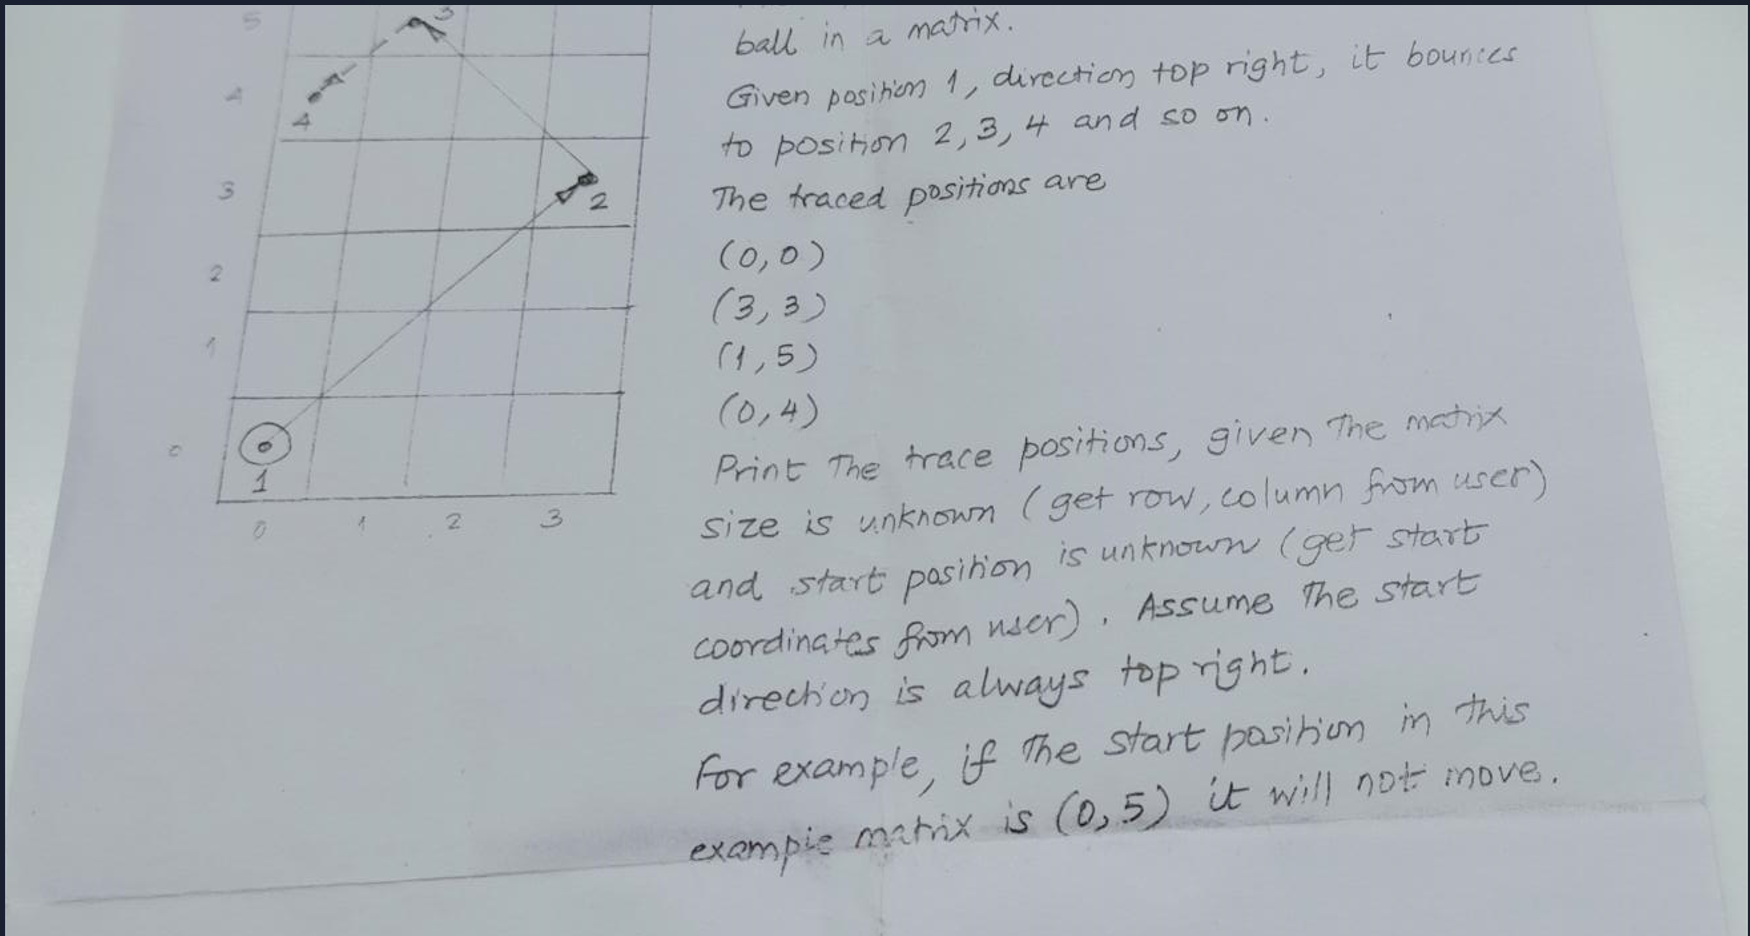 5
3
4
4
3
2
2
1
0
1
0 1 2 3
ball in a matrix.
Given position 1, direction top right, it bounces
to position 2, 3, 4 and so on.
The traced positions are
(0,0)
(3,3)
(1,5)
(0,4)
Print The trace positions, given The matrix
size is unknown (get row, column from user)
and start position is unknown (get start
coordinates from user). Assume The start
direction is always top right.
For example, if The start position in this
example matrix is (0,5) it will not move.